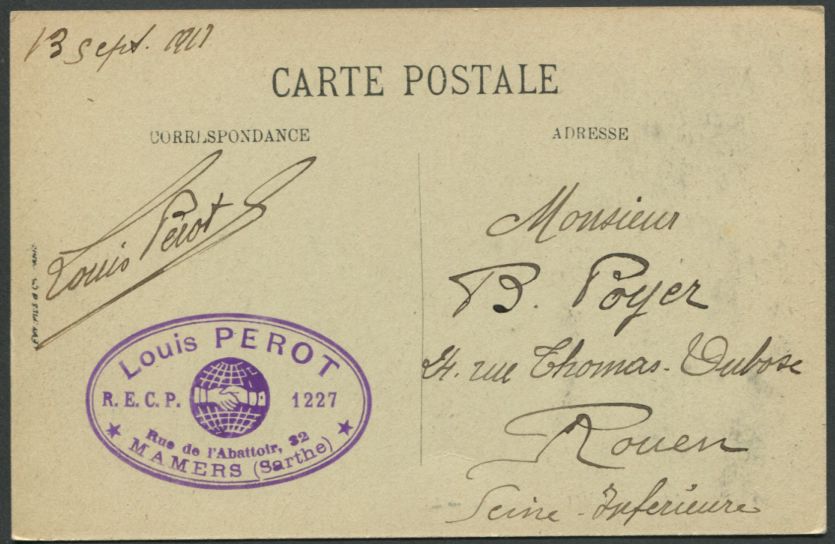 13 Sept. 1911
CARTE POSTALE
CORRESPONDANCE
ADRESSE
Louis Pérot
Monsieur
B. Poyer
24. rue Thomas-Dubosc
Rouen
Seine-Inférieure
Louis PEROT
R. E. C. P. 1227
Rue de l'Abattoir, 32
MAMERS (Sarthe)